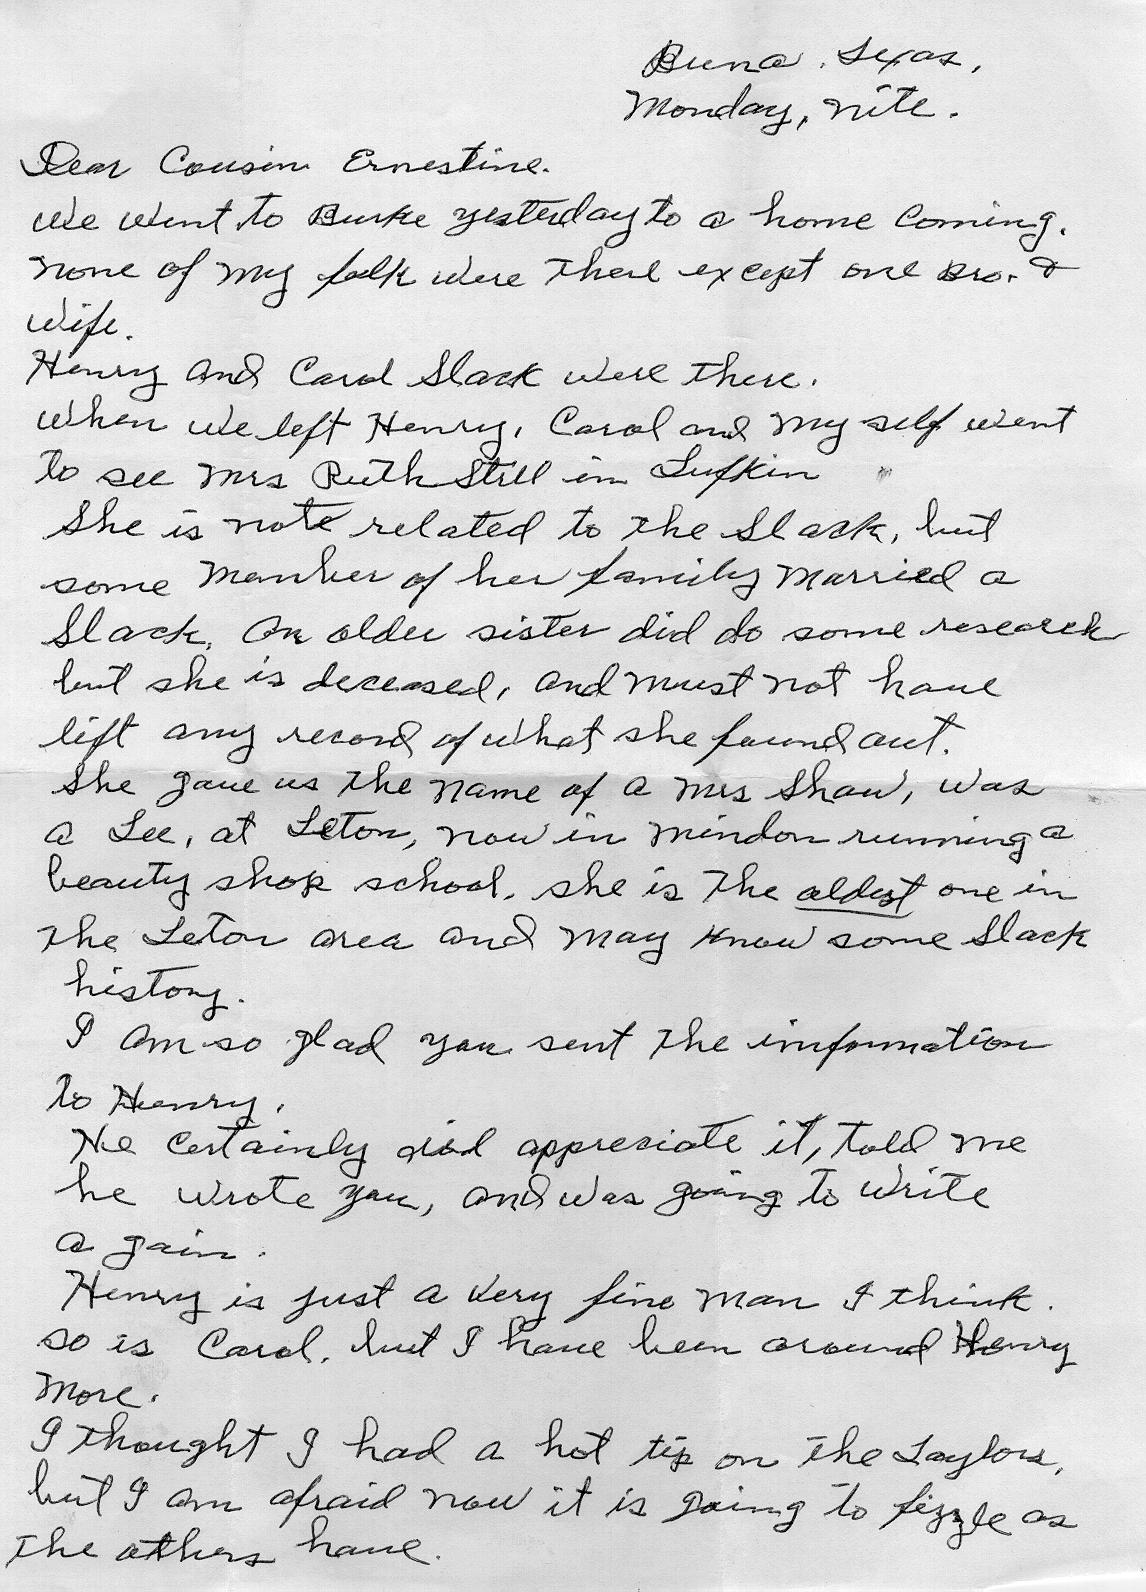 Buna, Texas,
Monday, nite.
Dear Cousin Ernestine.
We went to Burke yesterday to a home coming.
None of my folk were there except one Bro. &
wife.
Henry and Carol Slack were there.
When we left Henry, Carol and my self went
to see Mrs Ruth Still in Lufkin
She is note related to the Slack, but
some member of her family married a
Slack. An older sister did do some research
but she is deceased, and must not have
lift any record of what she found out.
She gave us the name of a Mrs Shaw, was
a Lee, at Leton, now in Mindon running a
beauty shop school. she is the oldest one in
the Leton area and may know some Slack
history.
I am so glad you sent the information
to Henry.
He certainly did appreciate it, told me
he wrote you, and was going to write
a gain.
Henry is just a very fine man I think.
so is Carol. but I have been around Henry
more.
I thought I had a hot tip on the Taylors,
but I am afraid now it is going to fizzle as
the others have.